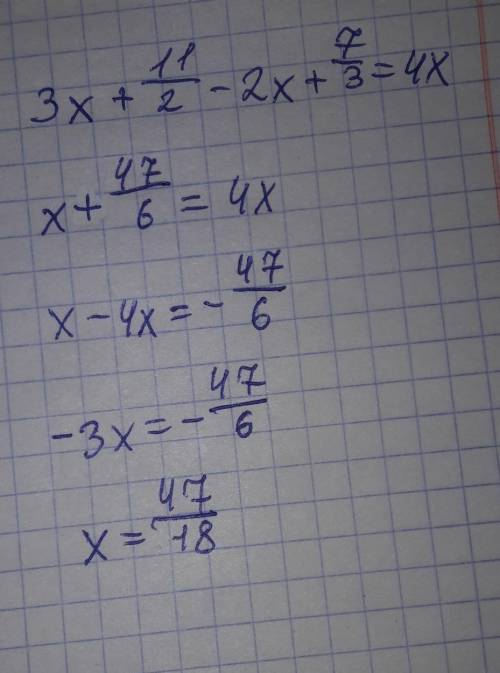 3x + 11/2 - 2x + 7/3 = 4x
x + 47/6 = 4x
x - 4x = - 47/6
-3x = - 47/6
x = 47/18